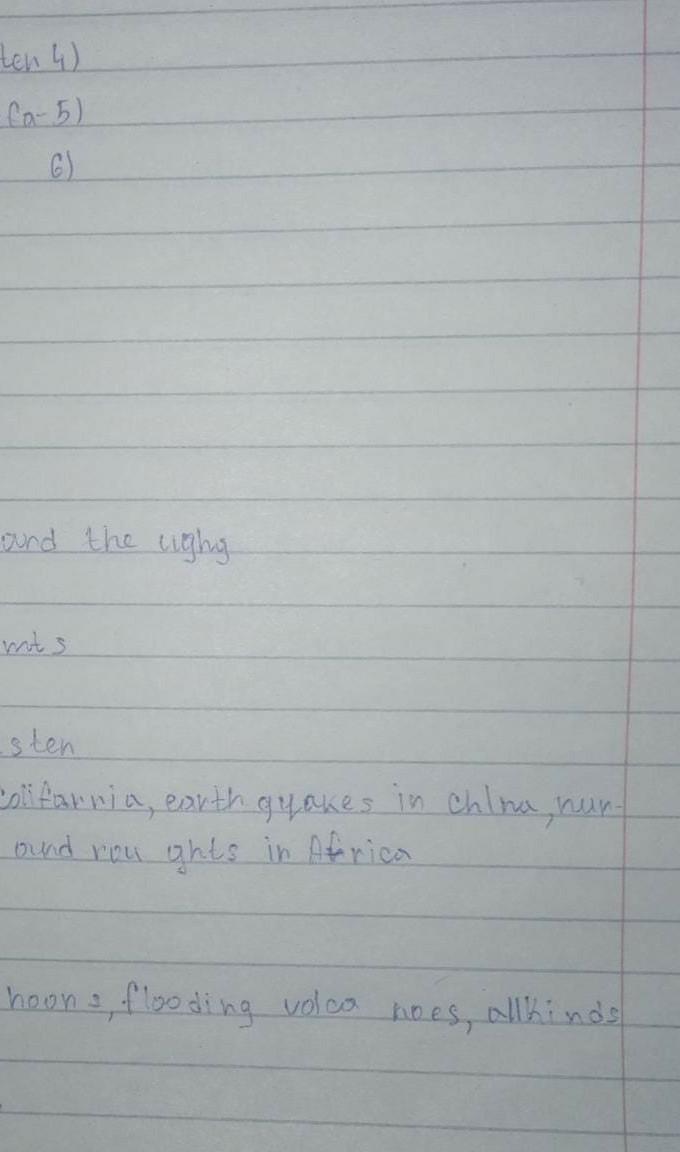 ten 4)
(a-5)
6)
and the ughy
mts
sten
Colifarnia, earth guakes in chlna, nur-
and rou ghts in Africa
hoons, flooding volca noes, allkinds